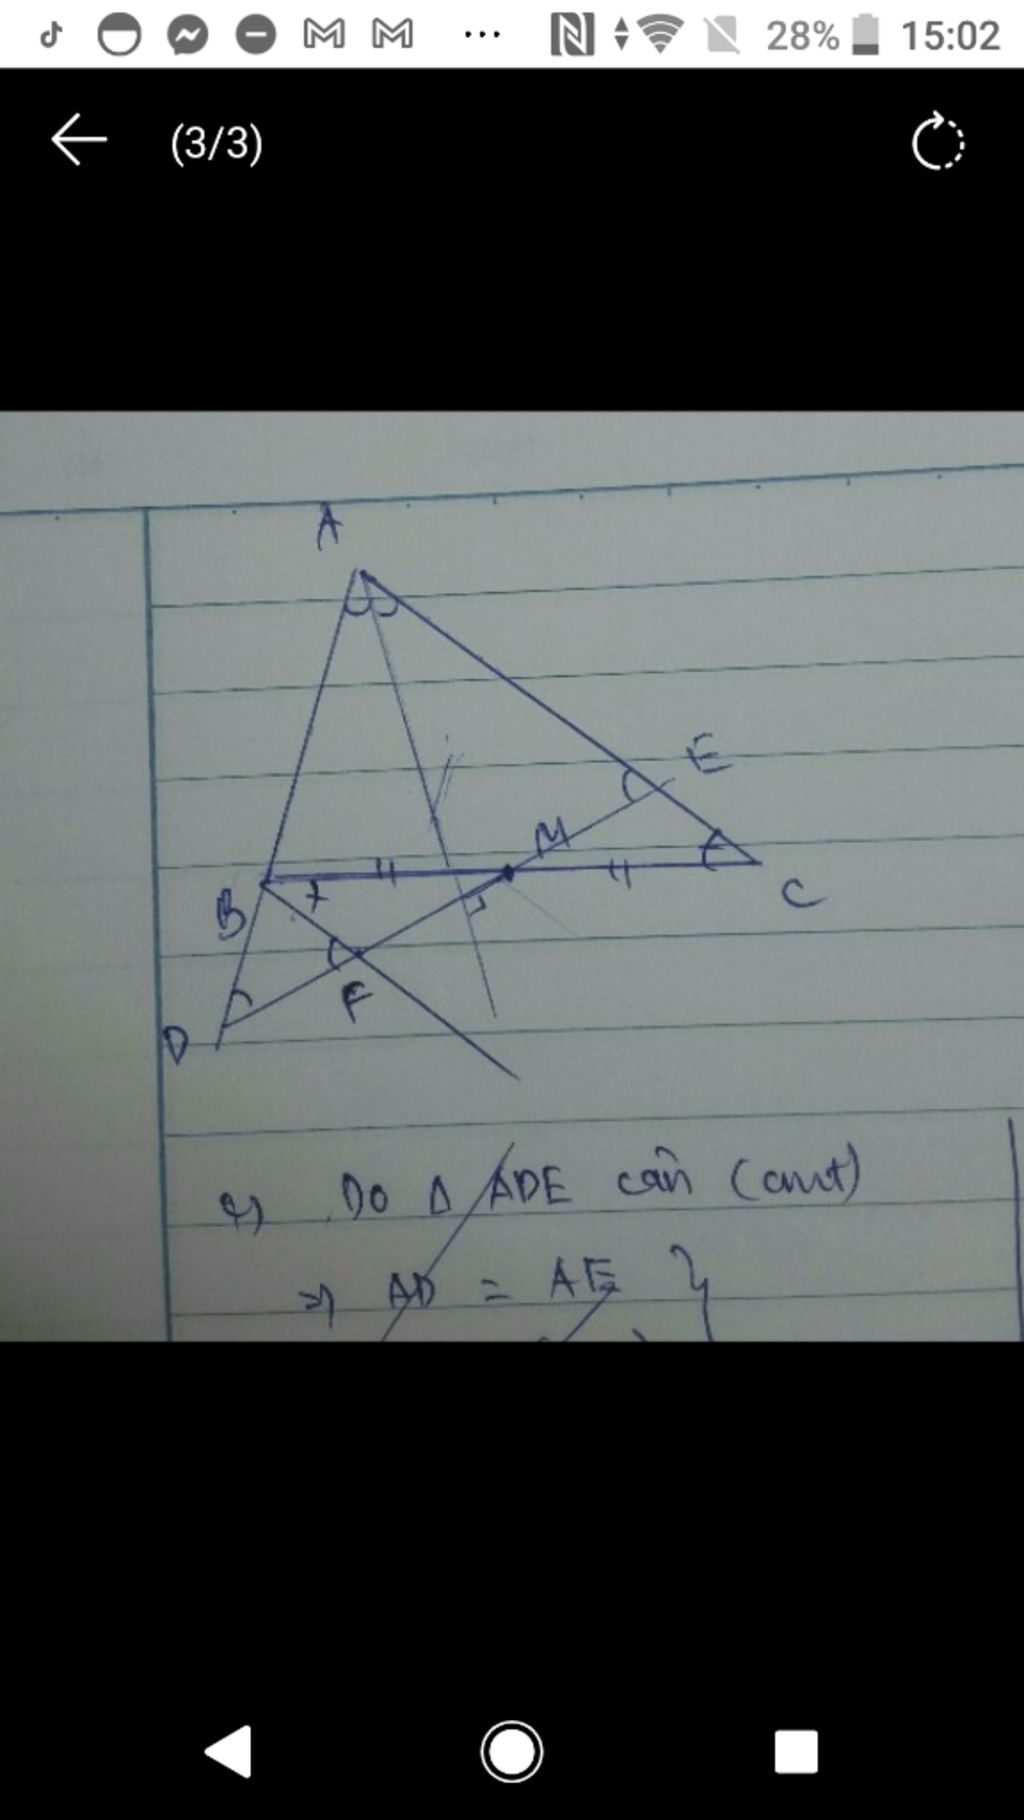 28% 15:02
(3/3)
A
E
M
B
x
C
F
D
c) Do Δ ADE cân (cmt)
=> AD = AE }